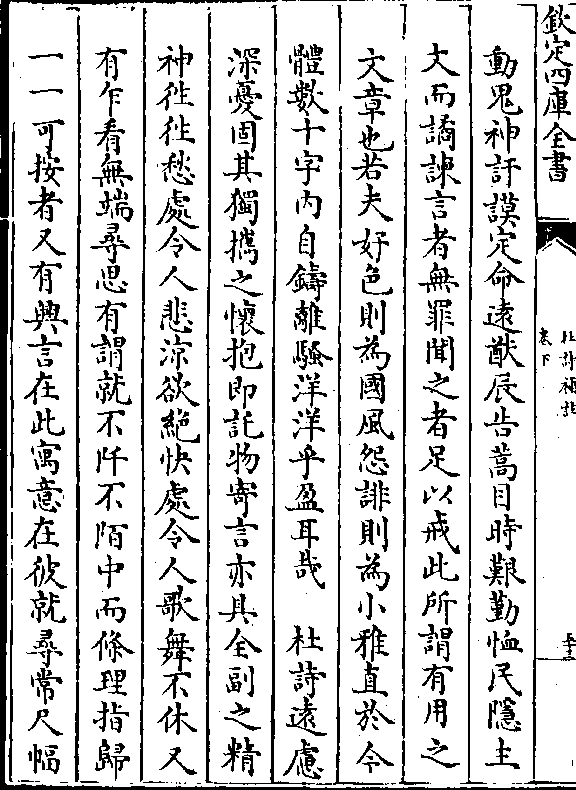 欽定四庫全書
杜詩攟
卷下
動鬼神訏謨定命遠猷辰告蒿目時艱勤恤民隱主
文而譎諫言者無罪聞之者足以戒此所謂有用之
文章也若夫好色則為國風怨誹則為小雅直於今
體數十字內自鑄離騷洋洋乎盈耳哉　杜詩遠慮
深憂固其獨擕之懷抱即託物寄言亦具全副之精
神徃徃愁處令人悲涼欲絶快處令人歌舞不休又
有乍看無端尋思有謂就不阡不陌中而條理指歸
一一可按者又有興言在此寓意在彼就尋常尺幅